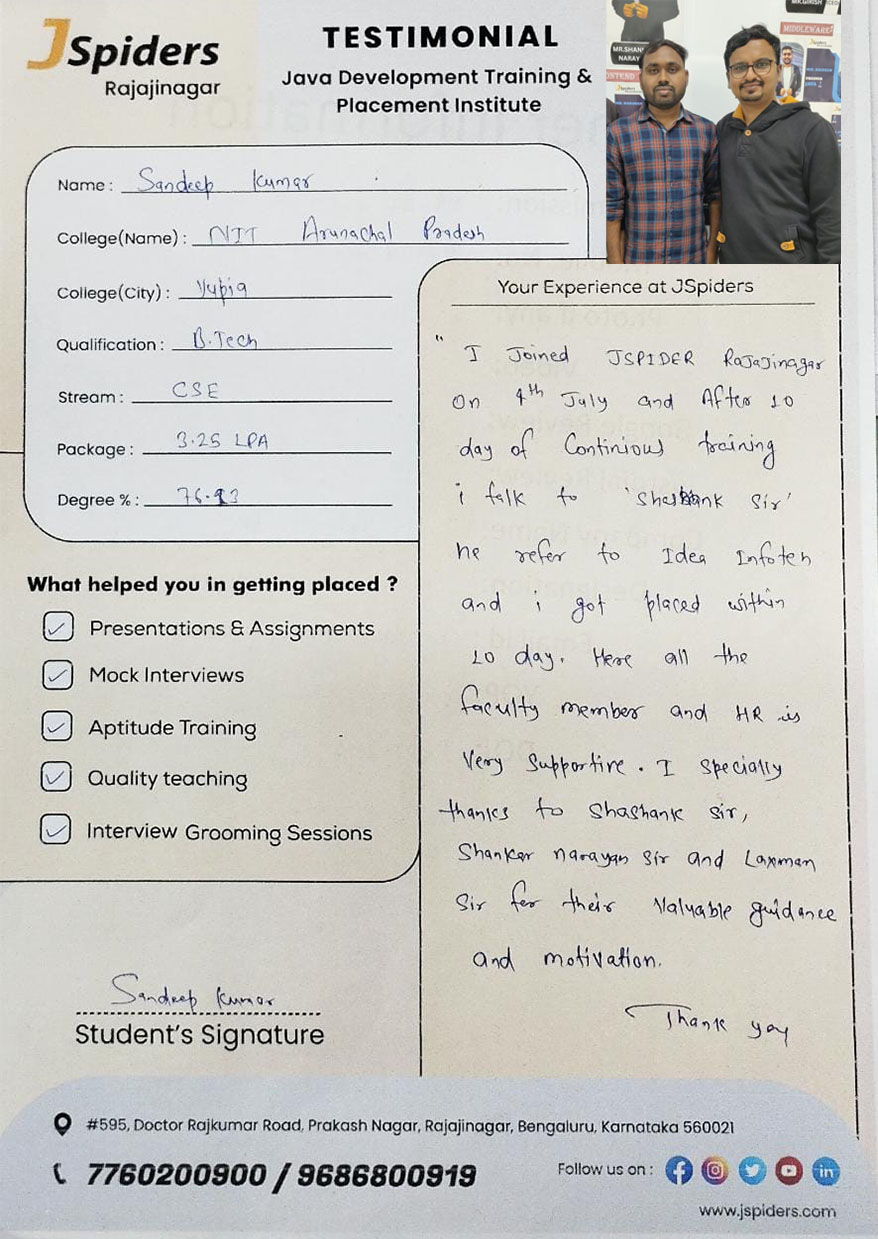 JSpiders
Rajajinagar
TESTIMONIAL
Java Development Training &
Placement Institute
MR.GIRISH
MIDDLEWARE
MR.SHAN
NARAY
Name : Sandeep Kumar
College(Name) : NIT Arunachal Pradesh
College(City) : Yupia
Qualification : B.Tech
Stream : CSE
Package : 3.25 LPA
Degree % : 76.93
What helped you in getting placed ?
Presentations & Assignments
Mock Interviews
Aptitude Training
Quality teaching
Interview Grooming Sessions
Sandeep Kumar
Student's Signature
Your Experience at JSpiders
" I Joined JSPIDER Rajajinagar
On 4th July and After 10
day of Continious training
i talk to 'Shashank Sir'
he refer to Idea Infoteh
and i got placed within
10 day. Here all the
faculty member and HR is
Very Supportive. I specially
thanks to Shashank sir,
Shanker narayan Sir and Laxman
Sir for their Valuable guidance
and motivation.
Thank you
#595, Doctor Rajkumar Road, Prakash Nagar, Rajajinagar, Bengaluru, Karnataka 560021
7760200900 / 9686800919
Follow us on :
www.jspiders.com